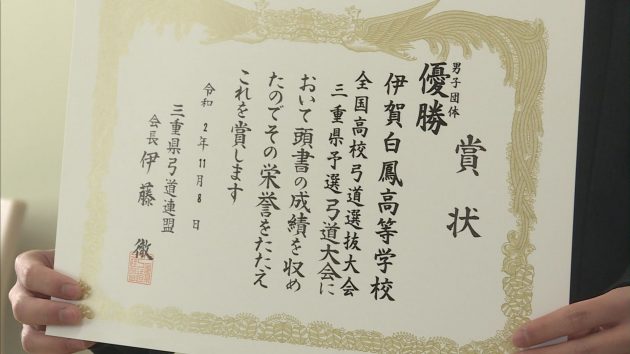 賞状
男子団体
優勝
伊賀白鳳高等学校
全国高校弓道選抜大会
三重県予選弓道大会に
おいて頭書の成績を収め
たのでその栄誉をたたえ
これを賞します
令和2年11月8日
三重県弓道連盟
会長 伊藤 徹